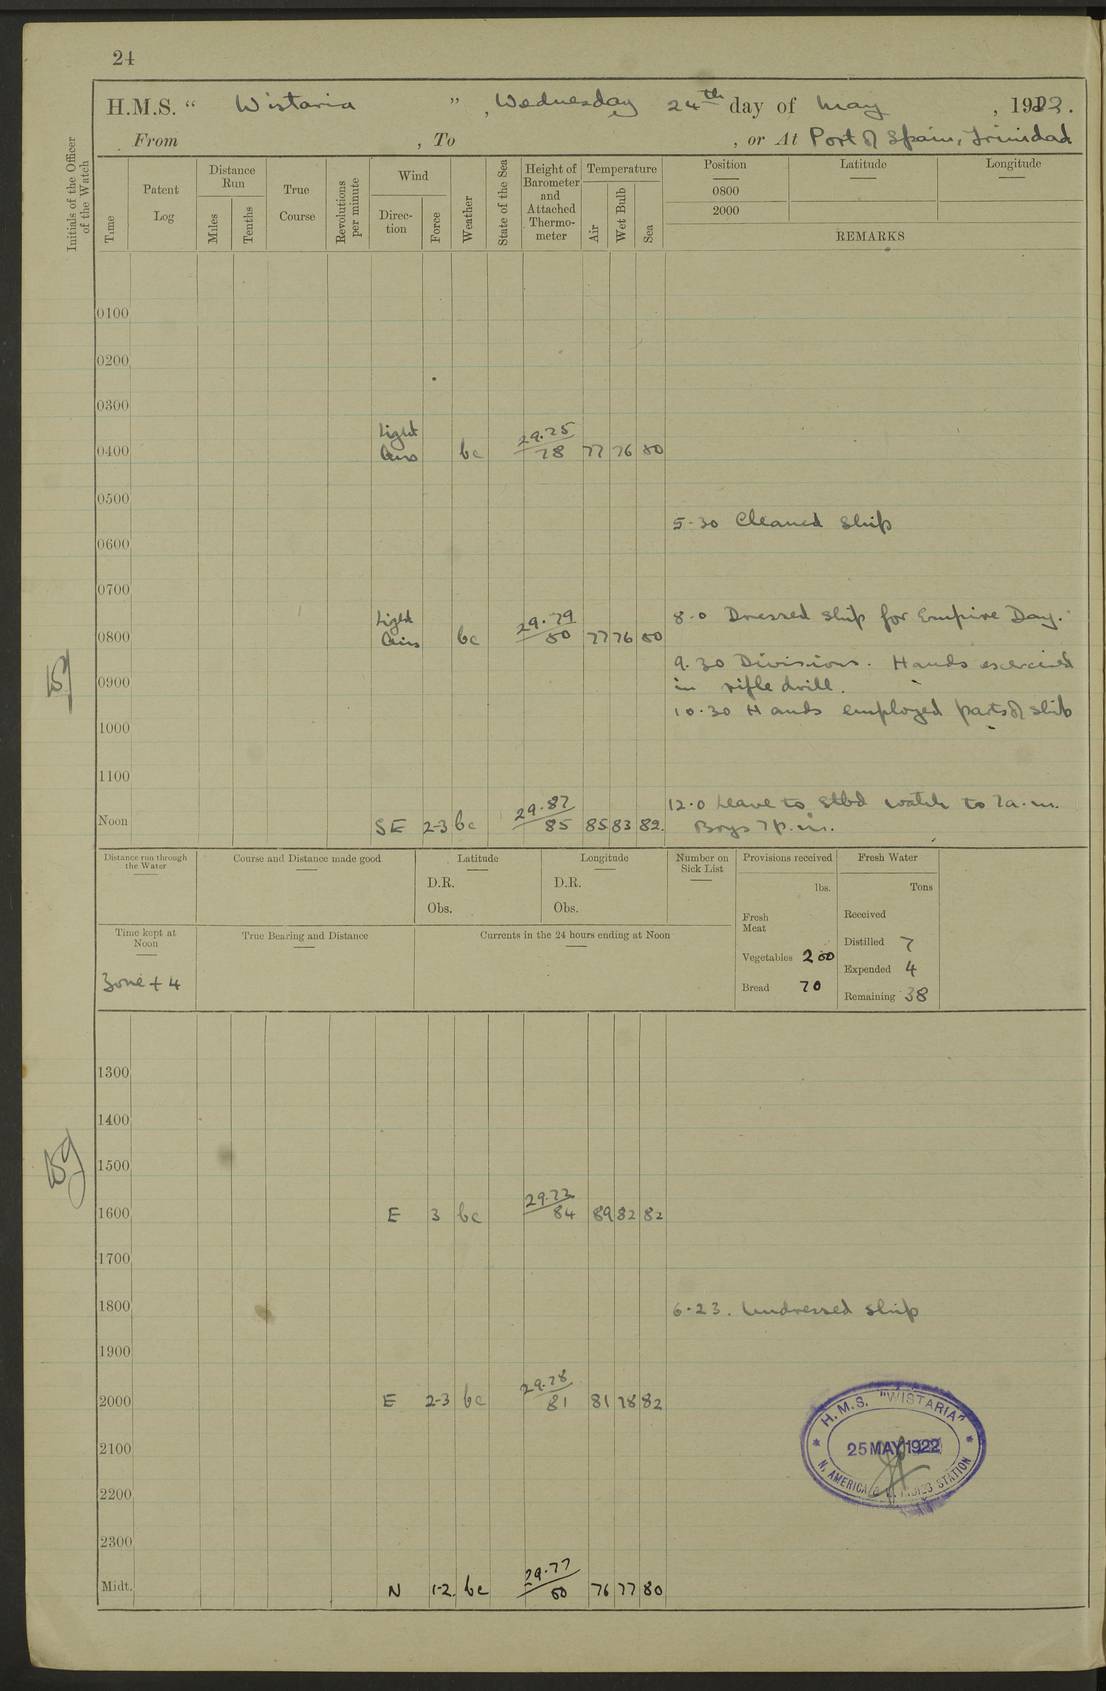 24
H.M.S. “ Wistaria ” , Wednesday 24th day of May , 1922.
From , To , or At Port of Spain, Trinidad
Initials of the Officer of the Watch
Time
Patent Log
Distance Run
Miles
Tenths
True Course
Revolutions per minute
Wind
Direc-tion
Force
Weather
State of the Sea
Height of Barometer and Attached Thermo-meter
Temperature
Air
Wet Bulb
Sea
Position Latitude Longitude
0800
2000
REMARKS
0100
0200
0300
Light 29.75
0400 Airs bc 78 77 76 80
0500
5-30 Cleaned ship
0600
0700
Light 29.79 8.0 Dressed ship for Empire Day.
0800 Airs bc 80 77 76 80
9.30 Divisions. Hands exercised
0900 in rifle drill.
10.30 Hands employed parts of ship
1000
1100
29.87 12.0 Leave to stbd watch to 7a.m.
Noon SE 2-3 bc 85 85 83 82. Boys 7p.m.
Distance run through the Water
Course and Distance made good
Latitude
D.R.
Obs.
Longitude
D.R.
Obs.
Number on Sick List
Provisions received
lbs.
Fresh Meat
Vegetables 200
Bread 70
Fresh Water
Tons
Received
Distilled 7
Expended 4
Remaining 38
Time kept at Noon
Zone + 4
True Bearing and Distance
Currents in the 24 hours ending at Noon
1300
1400
1500
29.73
1600 E 3 bc 84 89 82 82
1700
1800 6.23. Undressed ship
1900
29.78
2000 E 2-3 bc 81 81 78 82
H.M.S. "WISTARIA"
25 MAY 1922
N. AMERICA & W. INDIES STATION
2100
2200
2300
29.77
Midt. N 1-2 bc 80 76 77 80